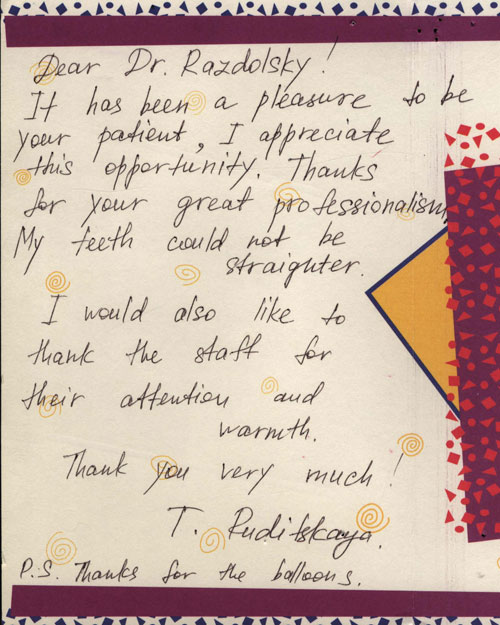 Dear Dr. Razdolsky!
It has been a pleasure to be
your patient, I appreciate
this opportunity. Thanks
for your great professionalism
My teeth could not be
straighter.
I would also like to
thank the staff for
their attention and
warmth.
Thank you very much!
T. Ruditskaya.
P.S. Thanks for the balloons.